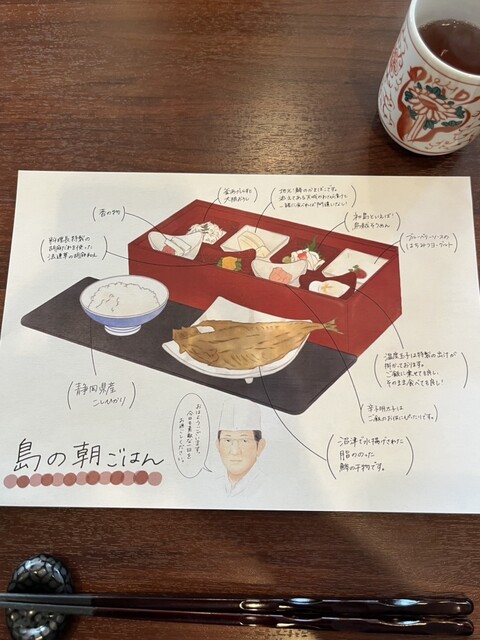 香の物
釜あげしらすと
大根おろし
地元！鯵のかまぼこです。
添えてある天城のわさび漬けと
一緒に食べれば間違いなし！
初島といえば！
島風そうめん
ブルーベリーソースの
はちみつヨーグルト
料理長特製の
胡麻だれを使った
法蓮草の胡麻あえ
温度玉子は特製の出汁が
掛かっております。
ご飯に乗せても良し、
そのまま食べても良し！
静岡県産
こしひかり
辛子明太子は
ご飯のお供にぴったりです。
沼津で水揚げされた
脂ののった
鯵の干物です。
おはようございます。
今日も素敵な一日を
お過ごしください。
島の朝ごはん